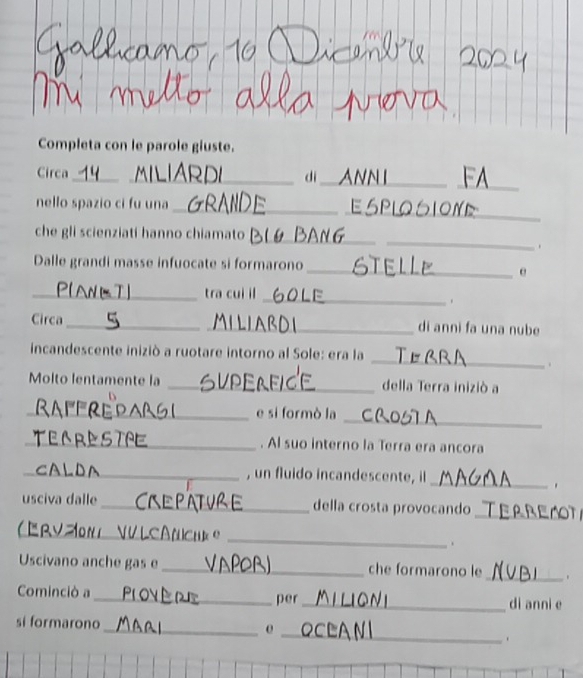 Gallicano, 10 Dicembre 2024
Mi metto alla prova.
Completa con le parole giuste.
Circa 14 MILIARDI di ANNI FA
nello spazio ci fu una GRANDE ESPLOSIONE
che gli scienziati hanno chiamato BIG BANG .
Dalle grandi masse infuocate si formarono STELLE e
PIANETI tra cui il SOLE .
Circa 5 MILIARDI di anni fa una nube
incandescente iniziò a ruotare intorno al Sole: era la TERRA .
Molto lentamente la SUPERFICIE della Terra iniziò a
RAFFREDDARSI e si formò la CROSTA
TERRESTRE . Al suo interno la Terra era ancora
CALDA , un fluido incandescente, il MAGMA ,
usciva dalle CREPATURE della crosta provocando TERREMOTI
ERUZIONI VULCANICHE e .
Uscivano anche gas e VAPORI che formarono le NUBI .
Cominciò a PIOVERE per MILIONI di anni e
si formarono MARI e OCEANI .